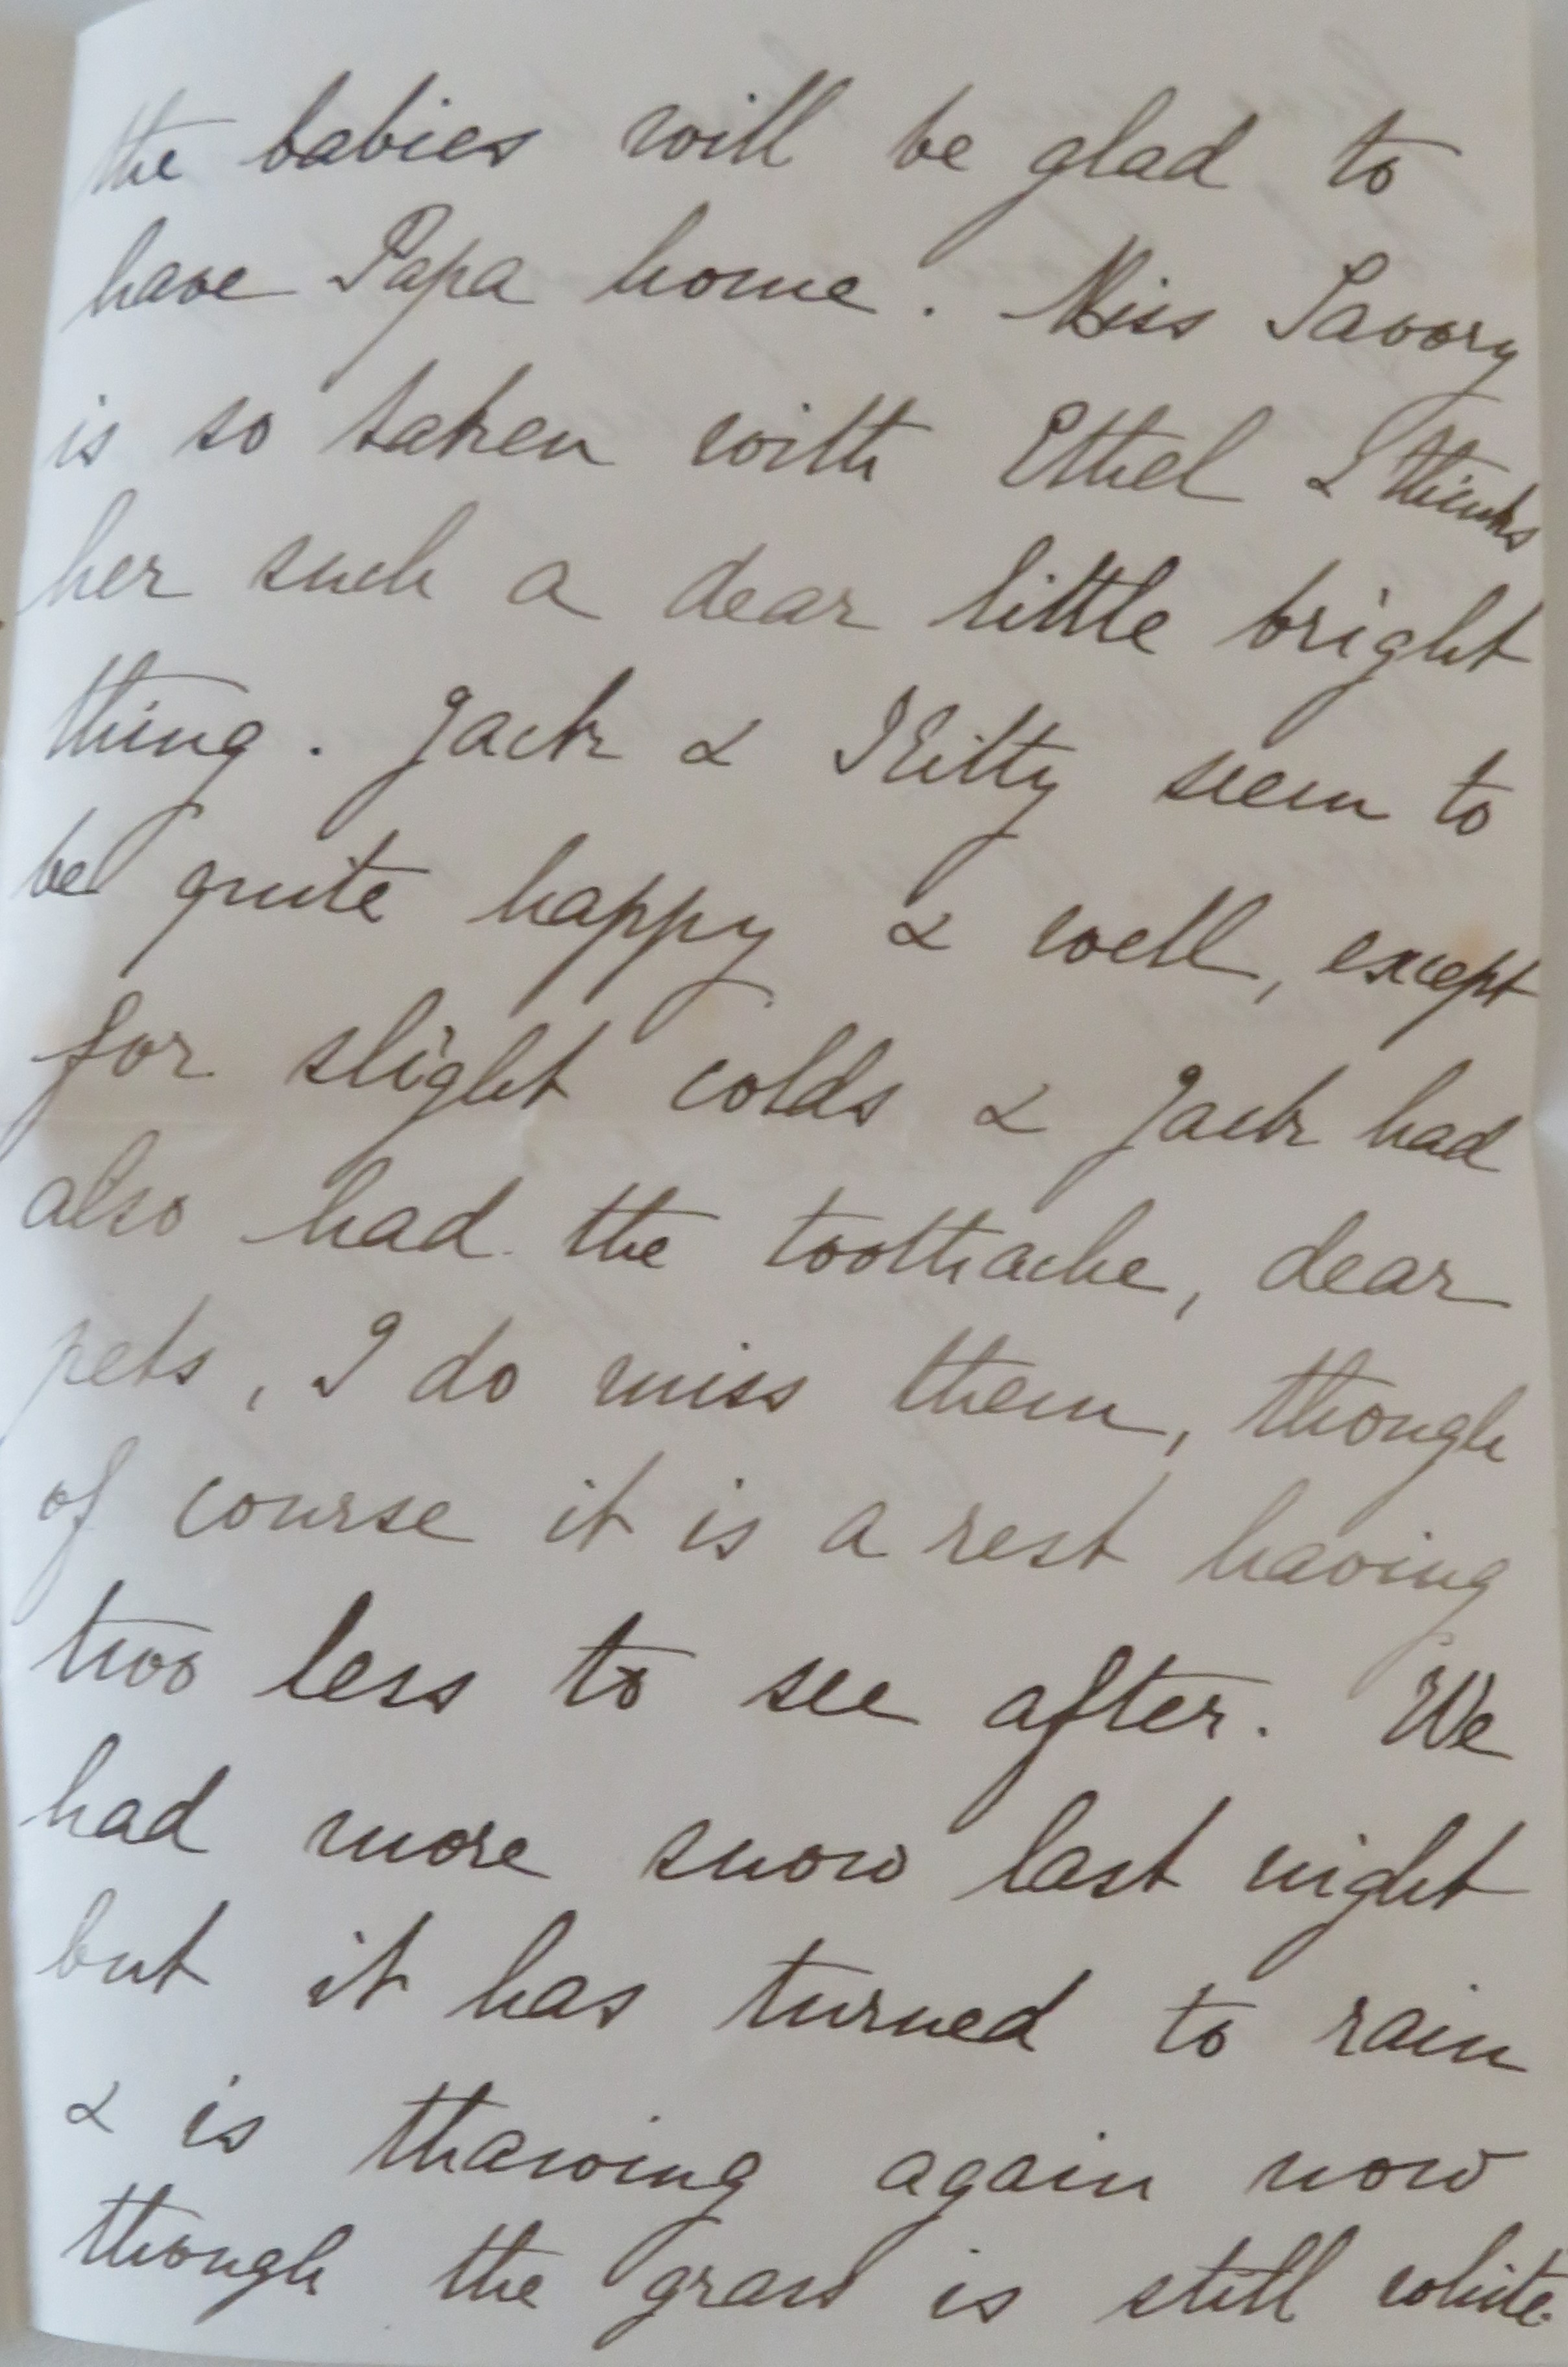 the babies will be glad to
have Papa home. Miss Savory
is so taken with Ethel & thinks
her such a dear little bright
thing. Jack & Kitty seem to
be quite happy & well, except
for slight colds & Jack had
also had the toothache, dear
pets, I do miss them, though
of course it is a rest having
two less to see after. We
had more snow last night
but it has turned to rain
& is thawing again now
though the grass is still white.